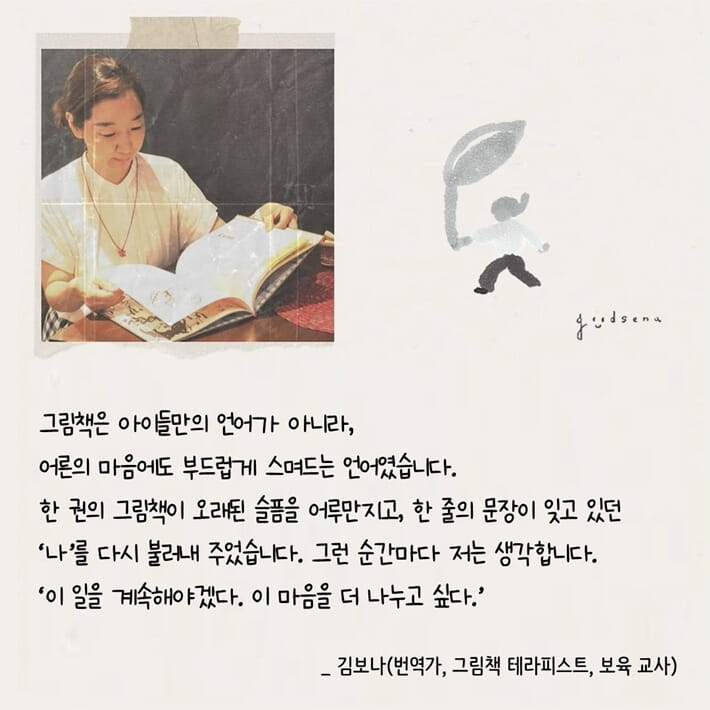 goodsena
그림책은 아이들만의 언어가 아니라,
어른의 마음에도 부드럽게 스며드는 언어였습니다.
한 권의 그림책이 오래된 슬픔을 어루만지고, 한 줄의 문장이 잊고 있던
‘나’를 다시 불러내 주었습니다. 그런 순간마다 저는 생각합니다.
‘이 일을 계속해야겠다. 이 마음을 더 나누고 싶다.’
_ 김보나(번역가, 그림책 테라피스트, 보육 교사)